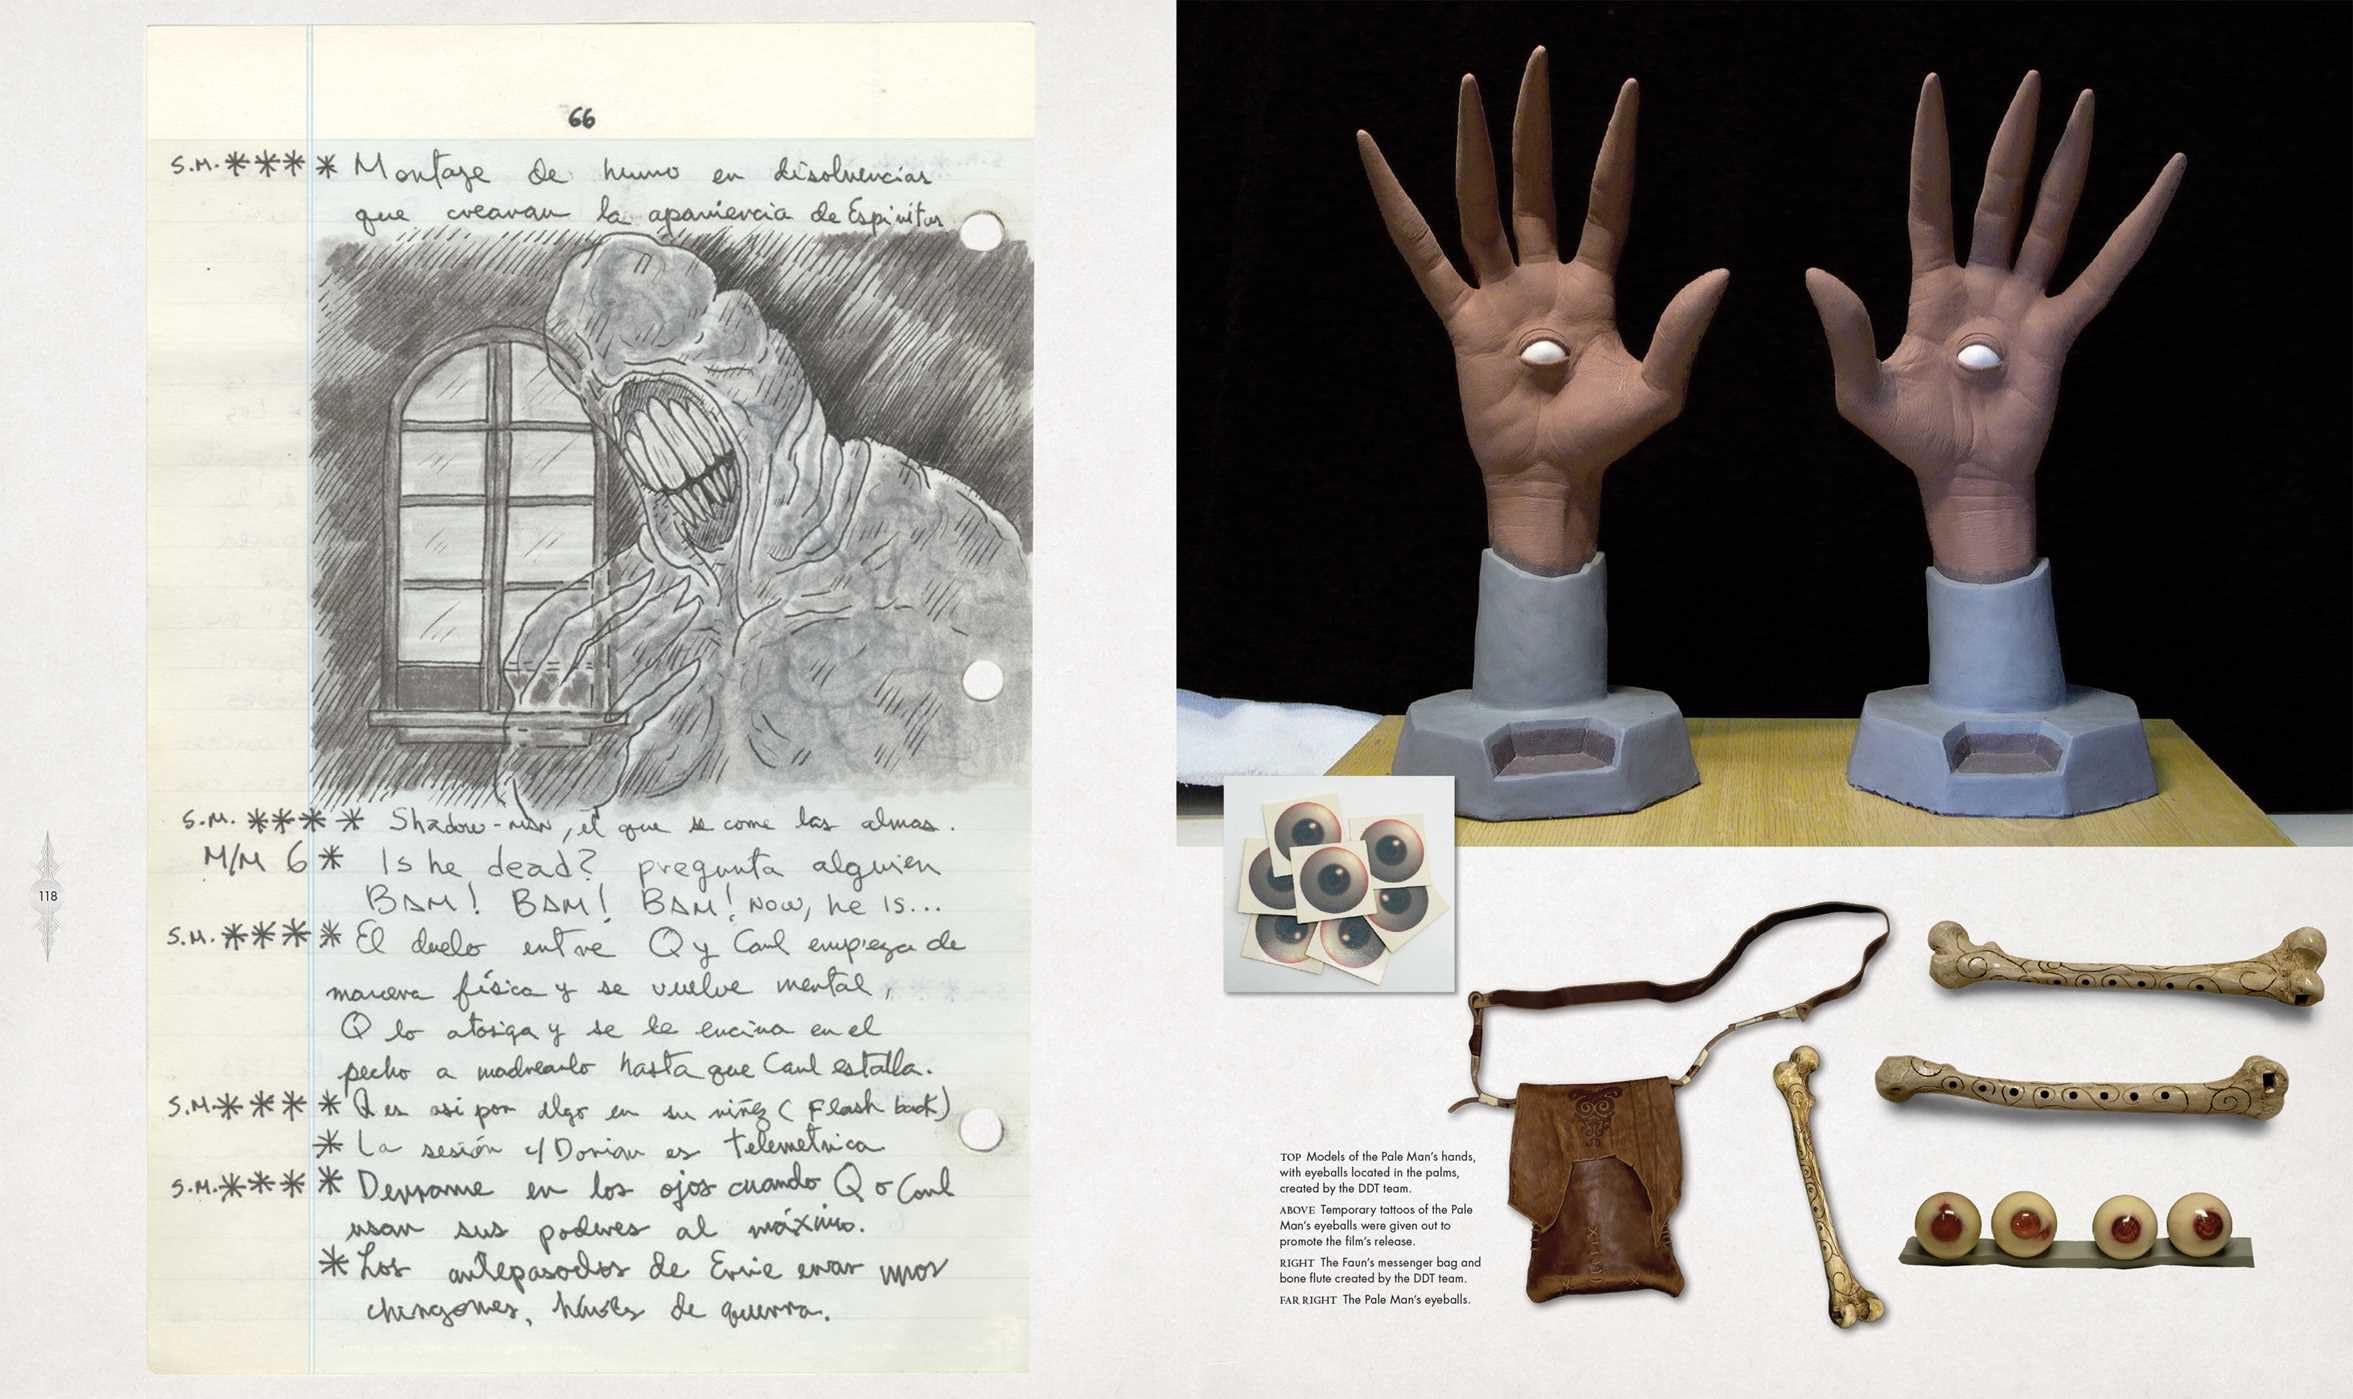 66
S.M. * * * * Montaje de humo en disolvencias
que crearan la apariencia de Espiritus
S.M. * * * * Shadow-man, el que se come las almas.
M/M 6 * Is he dead? pregunta alguien
BAM! BAM! BAM! NOW, he is...
S.M. * * * * El duelo entre Q y Caul empieza de
manera física y se vuelve mental,
Q lo atosiga y se le encima en el
pecho a madrearlo hasta que Caul estalla.
S.M. * * * * Q es asi por algo en su niñez (Flash back)
* La sesión c/Dorian es telemetrica
S.M. * * * * Derrame en los ojos cuando Q o Caul
usan sus poderes al máximo.
* Los antepasados de Ernie eran unos
chingones, héroes de guerra.
118
TOP Models of the Pale Man's hands,
with eyeballs located in the palms,
created by the DDT team.
ABOVE Temporary tattoos of the Pale
Man's eyeballs were given out to
promote the film's release.
RIGHT The Faun's messenger bag and
bone flute created by the DDT team.
FAR RIGHT The Pale Man's eyeballs.